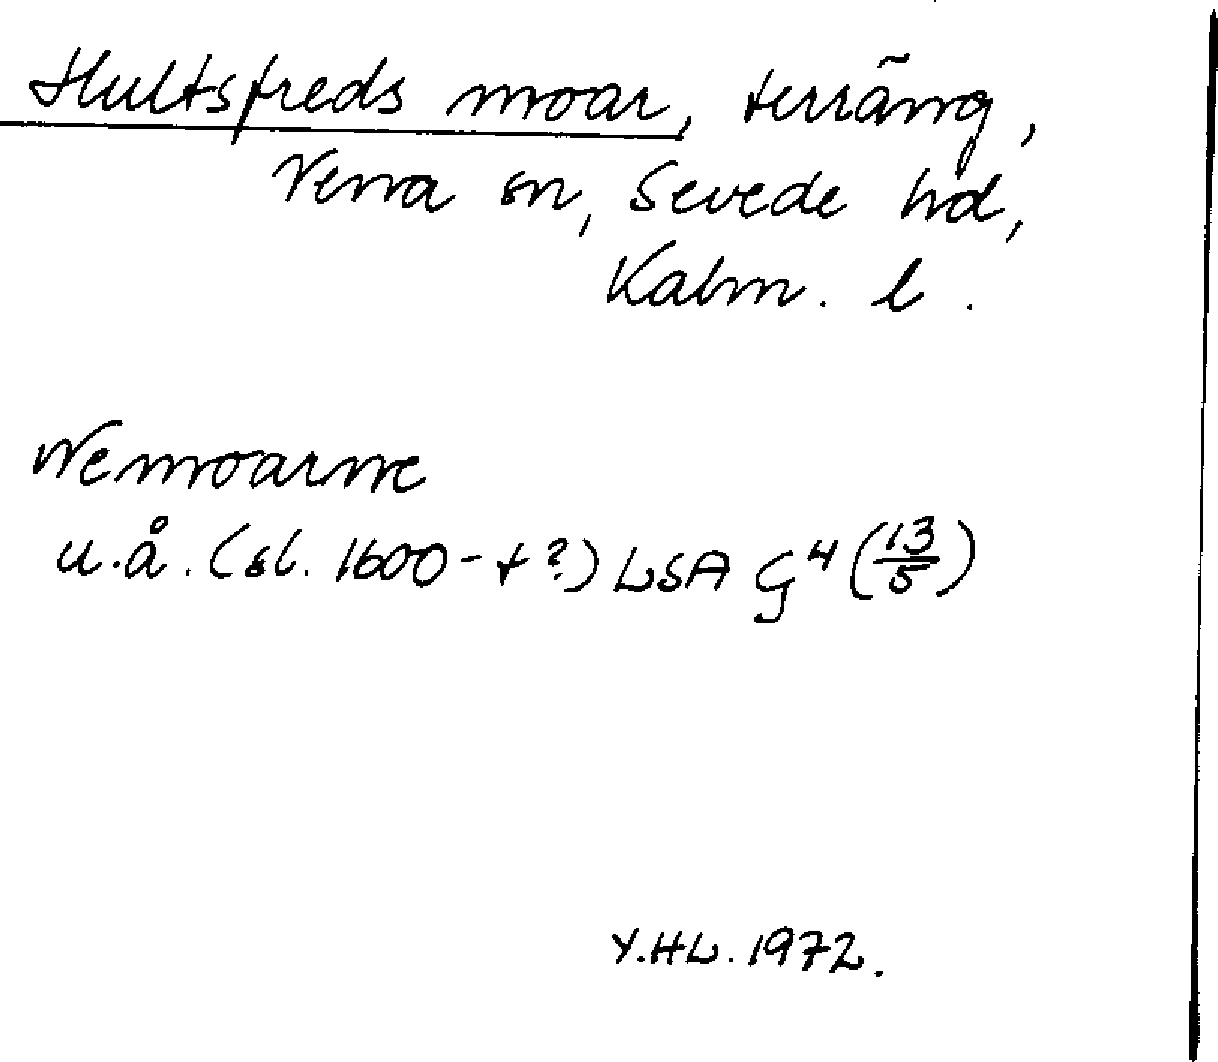 Hultsfreds moar, terräng,
Vena sn, Sevede hd,
Kalm. l.
Wemoarne
u.å. (sl. 1600-t?) LSA G⁴ (13/5)
Y.HL. 1972.